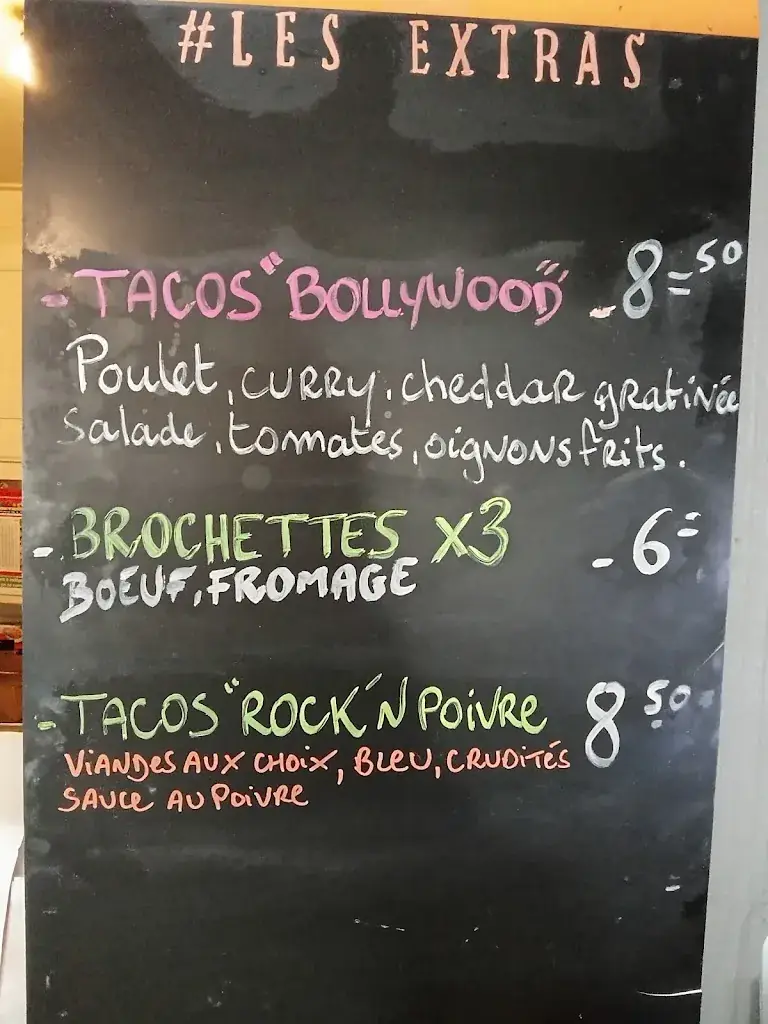 #LES EXTRAS
- TACOS "BOLLYWOOD" - 8=50
Poulet, CURRY, cheddar gratinée
Salade, tomates, oignons frits.
- BROCHETTES X3 - 6=
BOEUF, FROMAGE
- TACOS "ROCK'N POIVRE 8 50
VIANDES AUX CHOIX, BLEU, CRUDITÉS
SAUCE AU POIVRE